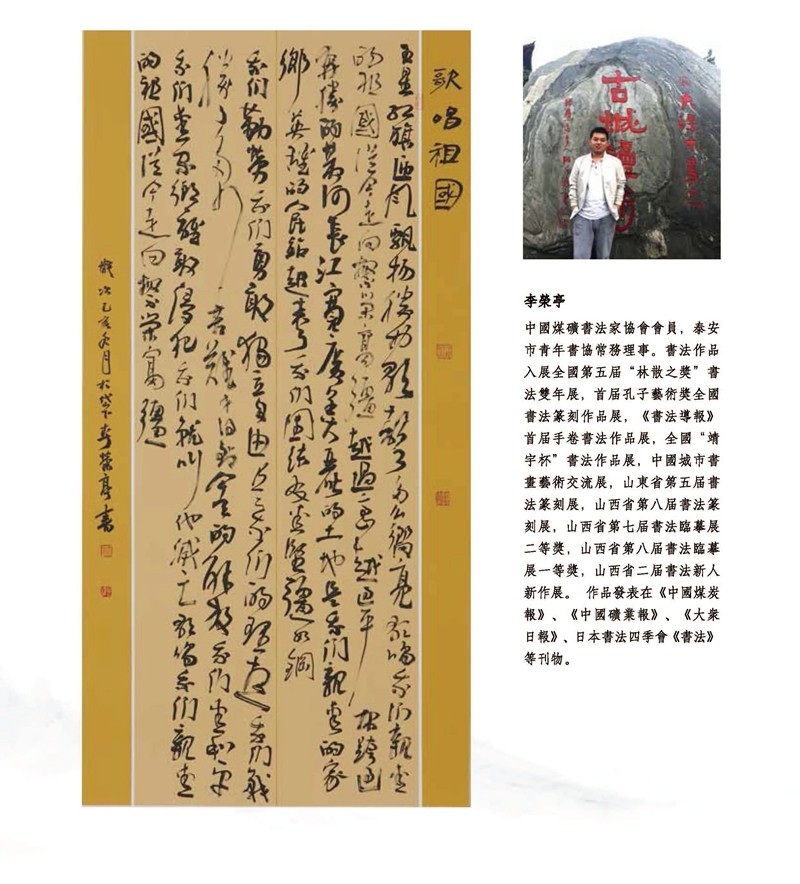 歌唱祖國
五星红旗迎风飘扬勝利歌聲多么響亮歌唱我们親爱
的祖國從今走向繁荣富彊越過高山越過平原跨過
奔腾的黄河長江寬廣美麗的土地是我们親爱的家
鄉英雄的人民站起来了我们團结友爱堅彊如鋼
我们勤劳我们勇敢獨立自由是我们的理想我们戰
勝了多少苦難才得到今天的解放我们爱和平
我们爱家鄉誰敢侵犯我们就叫他滅亡歌唱我们親爱
的祖國從今走向繁荣富彊
歲次己亥冬月於岱下李榮亭書
古城
李榮亭
中國煤礦書法家協會會員，泰安
市青年書協常務理事。書法作品
入展全國第五届“林散之獎”書
法雙年展，首届孔子藝術獎全國
書法篆刻作品展，《書法導報》
首届手卷書法作品展，全國“靖
宇杯”書法作品展，中國城市書
畫藝術交流展，山東省第五届書
法篆刻展，山西省第八届書法篆
刻展，山西省第七届書法臨摹展
二等獎，山西省第八届書法臨摹
展一等獎，山西省二届書法新人
新作展。 作品發表在《中國煤炭
報》、《中國礦業報》、《大衆
日報》、日本書法四季會《書法》
等刊物。